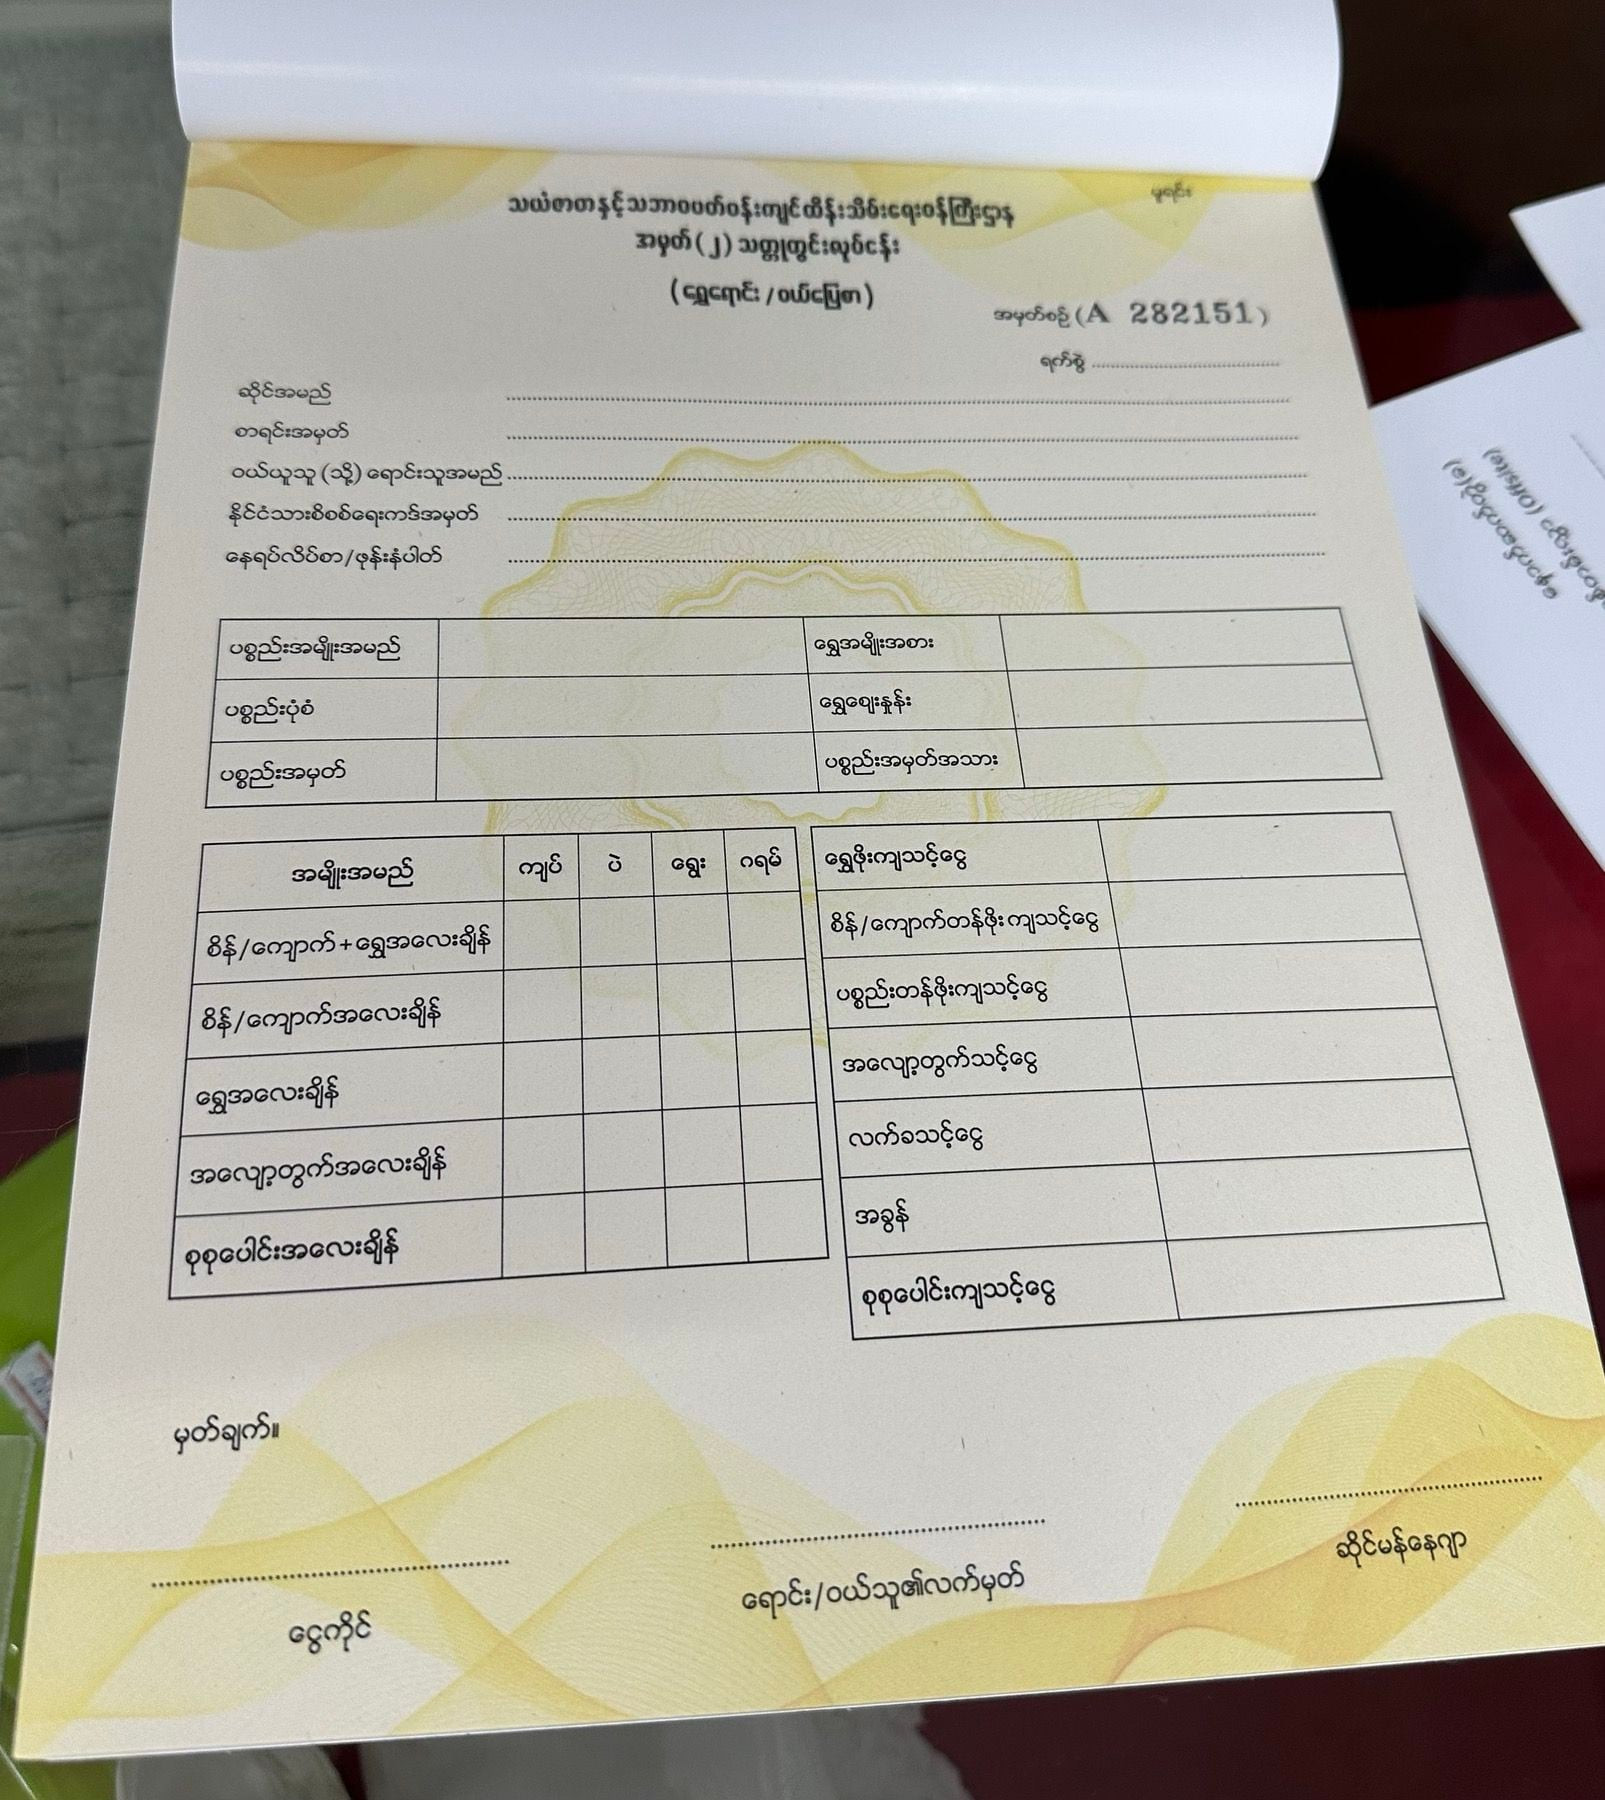 မူရင်း
သယံဇာတနှင့်သဘာဝပတ်ဝန်းကျင်ထိန်းသိမ်းရေးဝန်ကြီးဌာန
အမှတ်(၂)သတ္တုတွင်းလုပ်ငန်း
(ရွှေရောင်း/ဝယ်ပြေစာ)
အမှတ်စဉ်(A 282151)
ရက်စွဲ
ဆိုင်အမည်
စာရင်းအမှတ်
ဝယ်ယူသူ(သို့)ရောင်းသူအမည်
နိုင်ငံသားစိစစ်ရေးကဒ်အမှတ်
နေရပ်လိပ်စာ/ဖုန်းနံပါတ်
ပစ္စည်းအမျိုးအမည် ရွှေအမျိုးအစား
ပစ္စည်းပုံစံ ရွှေစျေးနှုန်း
ပစ္စည်းအမှတ် ပစ္စည်းအမှတ်အသား
အမျိုးအမည် ကျပ် ပဲ ရွေး ဂရမ်
စိန်/ကျောက်+ရွှေအလေးချိန်
စိန်/ကျောက်အလေးချိန်
ရွှေအလေးချိန်
အလျော့တွက်အလေးချိန်
စုစုပေါင်းအလေးချိန်
ရွှေဖိုးကျသင့်ငွေ
စိန်/ကျောက်တန်ဖိုးကျသင့်ငွေ
ပစ္စည်းတန်ဖိုးကျသင့်ငွေ
အလျော့တွက်သင့်ငွေ
လက်ခသင့်ငွေ
အခွန်
စုစုပေါင်းကျသင့်ငွေ
မှတ်ချက်။
ငွေကိုင်
ရောင်း/ဝယ်သူ၏လက်မှတ်
ဆိုင်မန်နေဂျာ